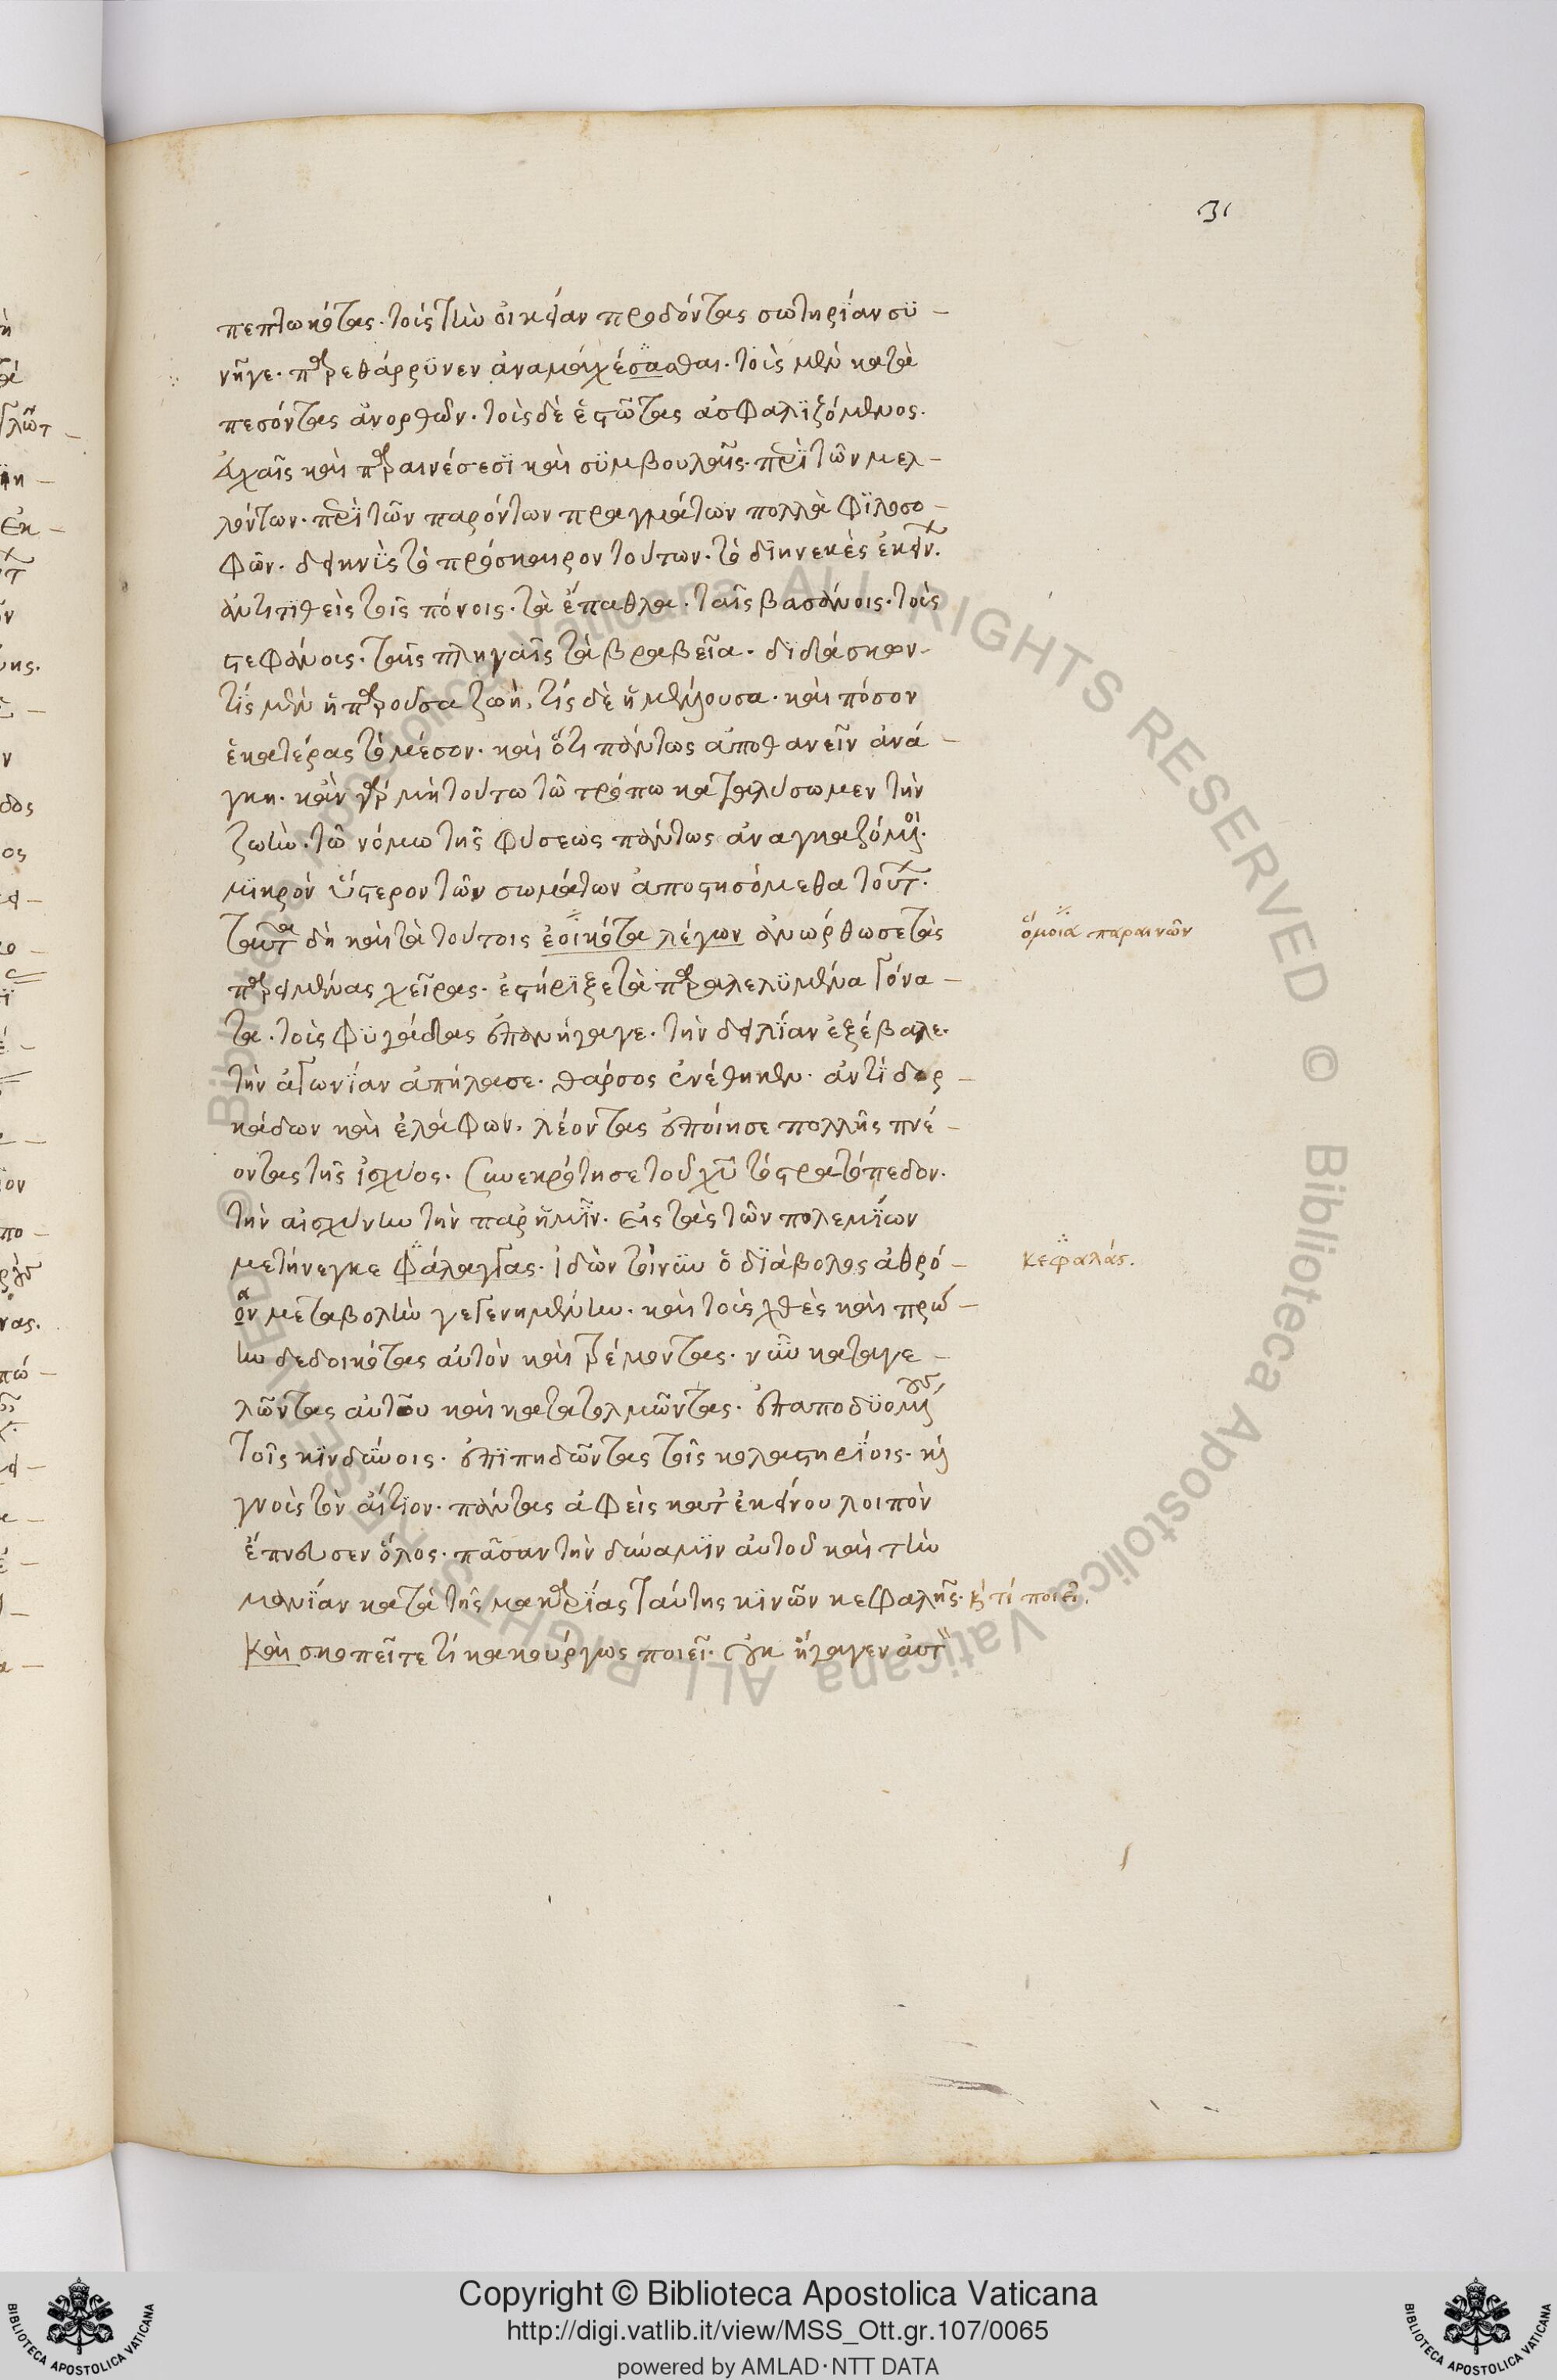 31
πεπτωκότας. τοὺς τὴν οἰκείαν προδόντας σωτηρίαν συ-
νῆγε. παρεθάρρυνεν ἀναμαχέσασθαι. τοὺς μὲν κατα
πεσόντας ἀνορθῶν. τοὺς δὲ ἑστῶτας ἀσφαλιζόμενος.
εὐχαῖς καὶ παραινέσεσι καὶ συμβουλαῖς. περὶ τῶν μελ-
λόντων. περὶ τῶν παρόντων πραγμάτων πολλὰ φιλοσο-
φῶν. δεικνὺς τὸ πρόσκαιρον τούτων. τὸ διηνεκὲς ἐκείνων.
ἀντιτιθεὶς τοῖς πόνοις. τὰ ἔπαθλα. ταῖς βασάνοις. τοὺς
στεφάνους. ταῖς πληγαῖς τὰ βραβεῖα. διδάσκων.
τίς μὲν ἡ παροῦσα ζωή, τίς δὲ ἡ μέλλουσα. καὶ πόσον
ἑκατέρας τὸ μέσον. καὶ ὅτι πάντως ἀποθανεῖν ἀνά-
γκη. κἂν γὰρ μὴ τούτω τῶ τρόπω καταλύσωμεν τὴν
ζωὴν. τῶ νόμω τῆς φύσεως πάντως ἀναγκαζόμενοι.
μικρὸν ὕστερον τῶν σωμάτων ἀποστησόμεθα τούτων.
ταῦτα δὴ καὶ τὰ τούτοις ἐοικότα λέγων ἀνώρθωσε τὰς
ὅμοια παραινῶν
παρειμένας χεῖρας. ἐστήριξε τὰ παραλελυμένα γόνα-
τα. τοὺς φυγάδας ἐπανήγαγε. τὴν δειλίαν ἐξέβαλε.
τὴν ἀγωνίαν ἀπήλασε. θάρσος ἐνέθηκεν. ἀντὶ δορ-
κάδων καὶ ἐλάφων, λέοντας ἐποίησε πολλῆς πνέ-
οντας τῆς ἰσχύος. συνεκρότησε τοῦ χῦ τὸ στρατόπεδον.
τὴν αἰσχύνην τὴν παρ' ἡμῖν. εἰς τὰς τῶν πολεμίων
μετήνεγκε φάλαγγας. ἰδὼν τοίνυν ὁ διάβολος ἀθρό-
κεφαλάς.
ον μεταβολὴν γεγενημένην. καὶ τοὺς χθὲς καὶ πρώ-
ην δεδοικότας αὐτὸν καὶ τρέμοντας. νῦν καταγε-
λῶντας αὐτοῦ καὶ κατατολμῶντας. ἐπαποδυομένους
τοῖς κινδύνοις. ἐπιπηδῶντας τοῖς κολαστηρίοις. καὶ
γνοὺς τὸν αἴτιον. πάντας ἀφεὶς κατ' ἐκείνου λοιπὸν
ἔπνευσεν ὅλος. πᾶσαν τὴν δύναμιν αὐτοῦ καὶ τὴν
μανίαν κατὰ τῆς μακαρίας ταύτης κινῶν κεφαλῆς. κ τί ποιεῖ.
καὶ σκοπεῖτε τί κακούργως ποιεῖ. οὐκ ἤγαγεν αὐτὸν
Copyright © Biblioteca Apostolica Vaticana
http://digi.vatlib.it/view/MSS_Ott.gr.107/0065
powered by AMLAD·NTT DATA